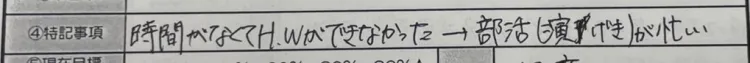 ④特記事項 時間がなくてH.Wができなかった → 部活(演げき)が忙しい
⑤現在目標